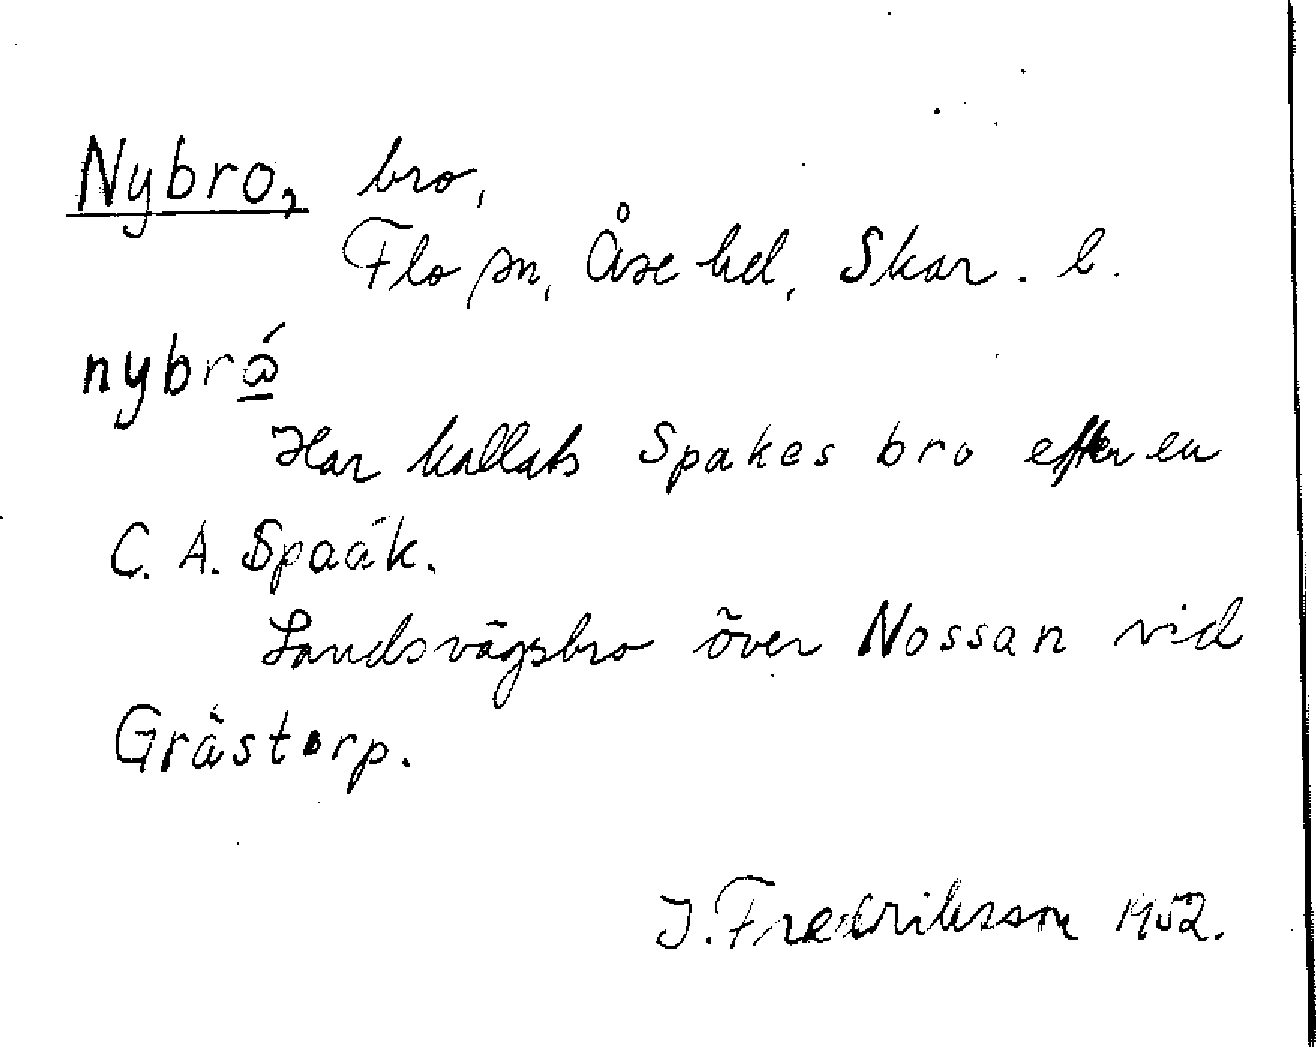 Nybro, bro,
Flo sn, Åse hd, Skar. l.
nybrǫ́
Har kallats Spakes bro efter en
C. A. Spaak.
Landsvägsbro över Nossan vid
Grästorp.
J. Fredriksson 1952.